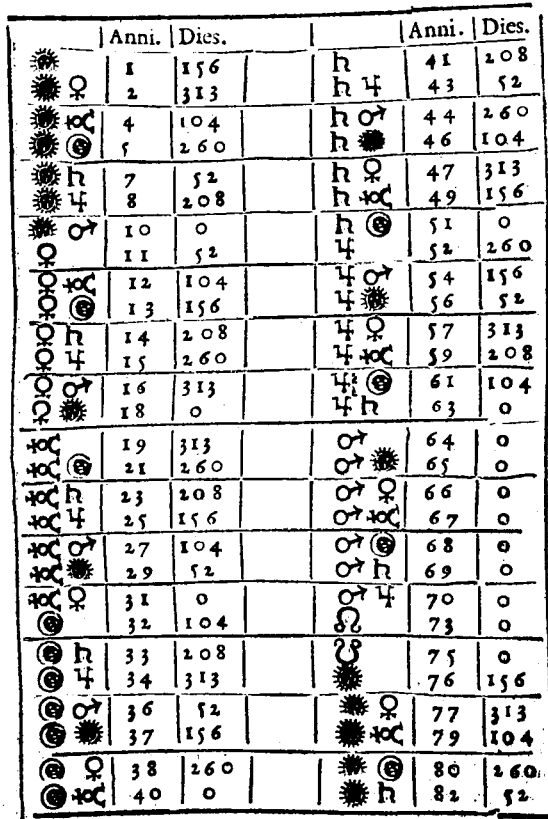 Anni. | Dies. | | Anni. | Dies.
☉ | 1 | 156 | ♄ | 41 | 208
☉ ♀ | 2 | 313 | ♄ ♃ | 43 | 52
☉ ☿ | 4 | 104 | ♄ ♂ | 44 | 260
☉ ☽ | 5 | 260 | ♄ ☉ | 46 | 104
☉ ♄ | 7 | 52 | ♄ ♀ | 47 | 313
☉ ♃ | 8 | 208 | ♄ ☿ | 49 | 156
☉ ♂ | 10 | 0 | ♄ ☽ | 51 | 0
♀ | 11 | 52 | ♃ | 52 | 260
♀ ☿ | 12 | 104 | ♃ ♂ | 54 | 156
♀ ☽ | 13 | 156 | ♃ ☉ | 56 | 52
♀ ♄ | 14 | 208 | ♃ ♀ | 57 | 313
♀ ♃ | 15 | 260 | ♃ ☿ | 59 | 208
♀ ♂ | 16 | 313 | ♃ ☽ | 61 | 104
♀ ☉ | 18 | 0 | ♃ ♄ | 63 | 0
☿ | 19 | 313 | ♂ | 64 | 0
☿ ☽ | 21 | 260 | ♂ ☉ | 65 | 0
☿ ♄ | 23 | 208 | ♂ ♀ | 66 | 0
☿ ♃ | 25 | 156 | ♂ ☿ | 67 | 0
☿ ♂ | 27 | 104 | ♂ ☽ | 68 | 0
☿ ☉ | 29 | 52 | ♂ ♄ | 69 | 0
☿ ♀ | 31 | 0 | ♂ ♃ | 70 | 0
☽ | 32 | 104 | ☊ | 73 | 0
☽ ♄ | 33 | 208 | ☋ | 75 | 0
☽ ♃ | 34 | 313 | ☉ | 76 | 156
☽ ♂ | 36 | 52 | ☉ ♀ | 77 | 313
☽ ☉ | 37 | 156 | ☉ ☿ | 79 | 104
☽ ♀ | 38 | 260 | ☉ ☽ | 80 | 260
☽ ☿ | 40 | 0 | ☉ ♄ | 82 | 52